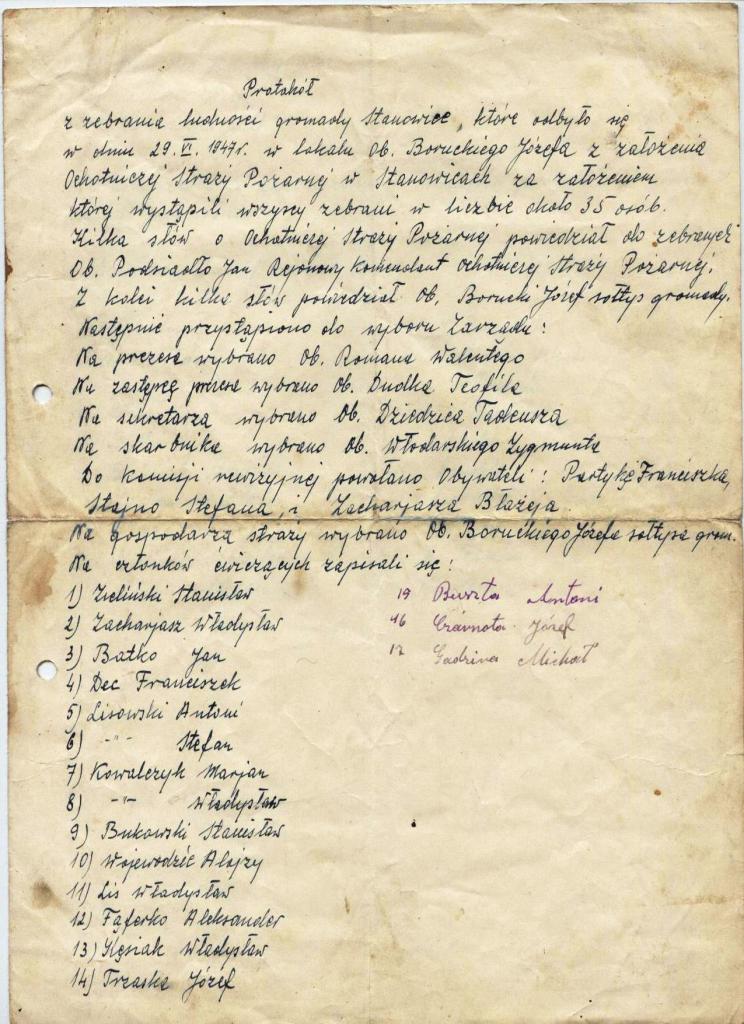 Protokół
z zebrania ludności gromady Stanowice, które odbyło się
w dniu 29.VI.1947r. w lokalu Ob. Boruckiego Józefa z założenia
Ochotniczej Straży Pożarnej w Stanowicach za założeniem
której wystąpili wszyscy zebrani w liczbie około 35 osób.
Kilka słów o Ochotniczej Straży Pożarnej powiedział do zebranych
Ob. Podsiadło Jan Rejonowy komendant Ochotniczej Straży Pożarnej.
Z kolei kilka słów powiedział Ob. Borucki Józef sołtys gromady.
Następnie przystąpiono do wyboru Zarządu:
Na prezesa wybrano Ob. Romana Walentego
Na zastępcę prezesa wybrano Ob. Dudka Teofila
Na sekretarza wybrano Ob. Dziedzica Tadeusza
Na skarbnika wybrano Ob. Włodarskiego Zygmunta
Do komisji rewizyjnej powołano Obywateli: Partykę Franciszka,
Stajno Stefana, i Zacharjasza Błażeja.
Na gospodarza straży wybrano Ob. Boruckiego Józefa sołtysa grom.
Na członków ćwiczących zapisali się:
1) Zieliński Stanisław
2) Zacharjasz Władysław
3) Batko Jan
4) Dec Franciszek
5) Lisowski Antoni
6) -"- Stefan
7) Kowalczyk Marjan
8) -"- Władysław
9) Bukowski Stanisław
10) Wojewodzic Alojzy
11) Lis Władysław
12) Fąferko Aleksander
13) Kęsiak Władysław
14) Trzaska Józef
Antoni
16 Czarnota Józef
17 Michał